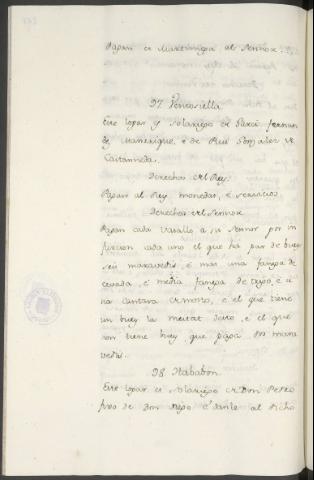 Papan de Martiniega al Sennor
97. Ventosiella
Este logar es solariego de Garci Fernan
dez Manrrique, e de Rui Gonzalez de
Castanneda.
Derechos del Rey.
Papan al Rey monedas, e servicios.
Derechos del Sennor
Papan cada vasallo a su sennor por in
furcion cada uno el que ha par de bueis
seis maravedis, e mas una fanega de
cevada, e media fanega de trigo, e u
na cantara de mosto, e el que tiene
un buey la meitat desto, e el que
non tiene buey que papa dos mara
vedis.
98. Nababon.
Este logar es solariego de Don Pedro
fijo de Don Diego e danle al dicho